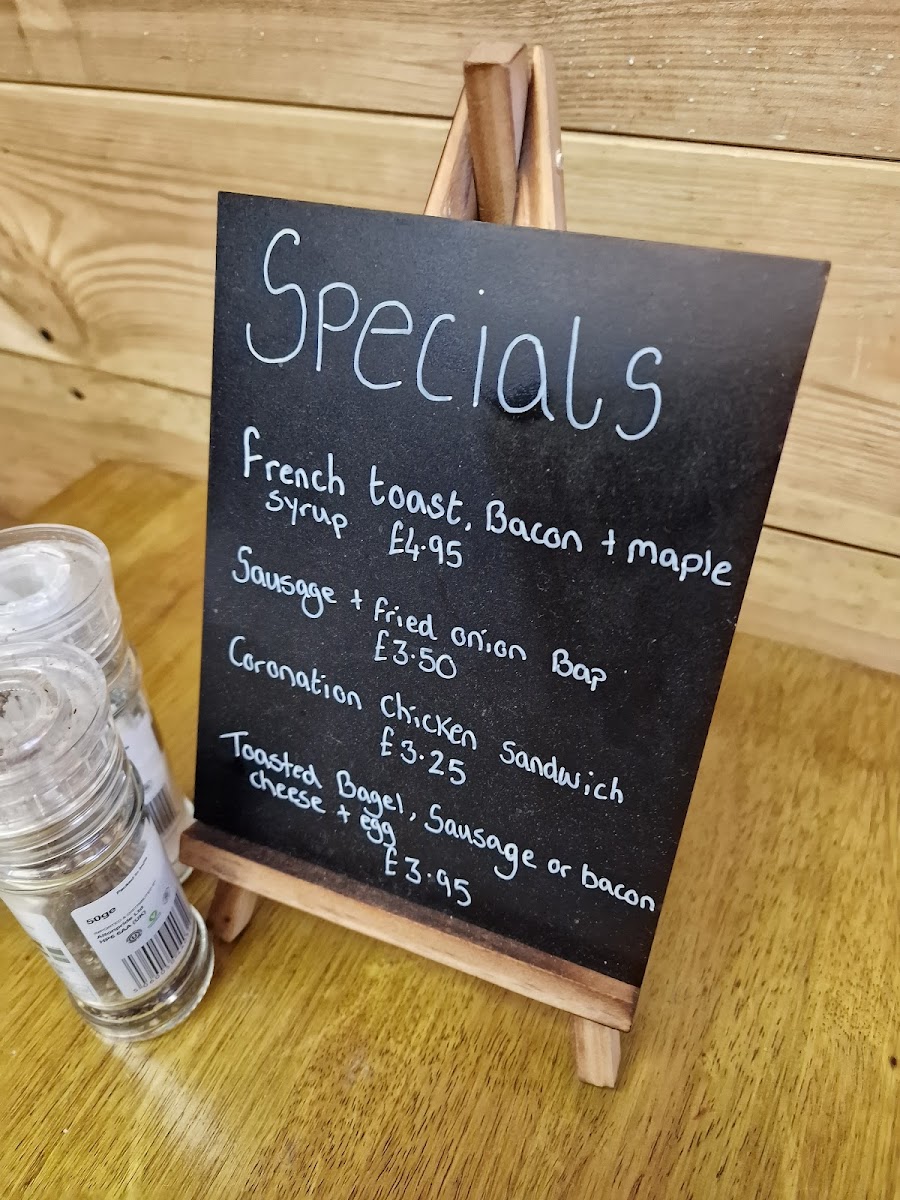 Specials
French toast, Bacon + maple
syrup £4.95
Sausage + fried onion Bap
£3.50
Coronation Chicken Sandwich
£3.25
Toasted Bagel, Sausage or bacon
cheese + egg
£3.95
50ge